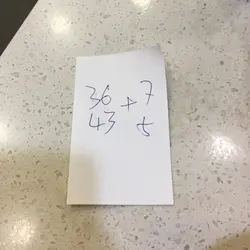 36 + 7
43 5